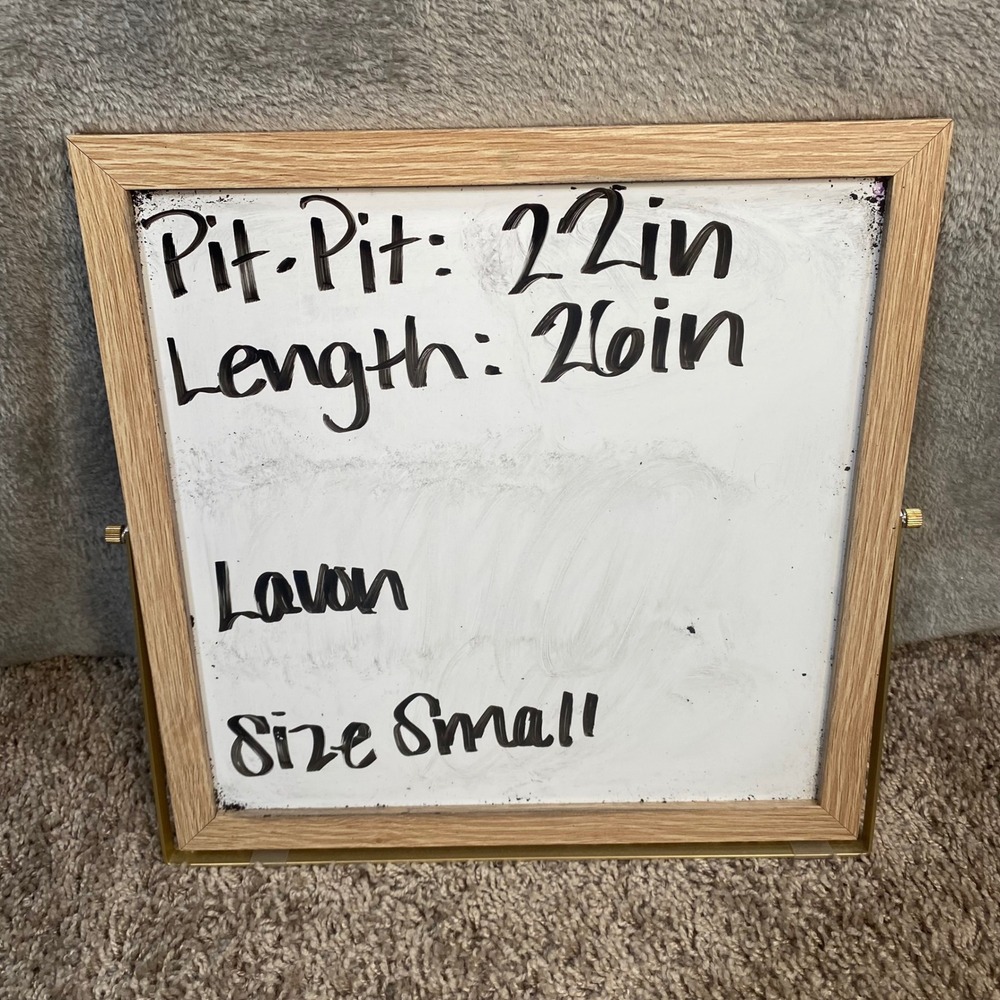 Pit-Pit: 22in
Length: 26in
Lavon
Size Small